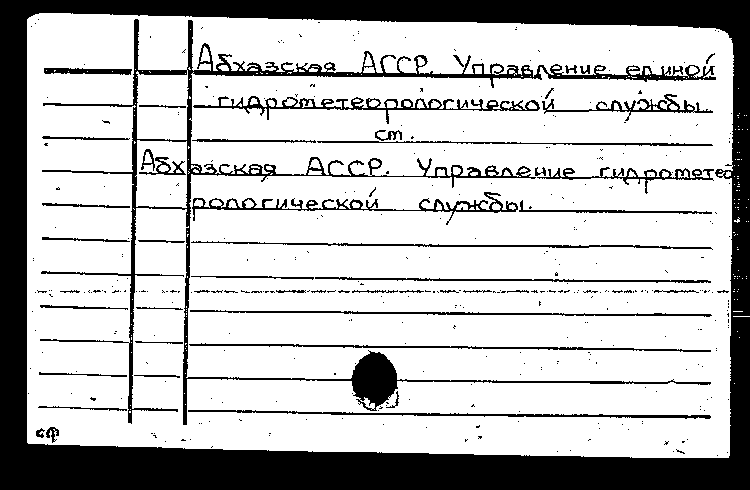 Абхазская АССР. Управление единой
гидрометеорологической службы.
ст.
Абхазская АССР. Управление гидрометео
рологической службы.